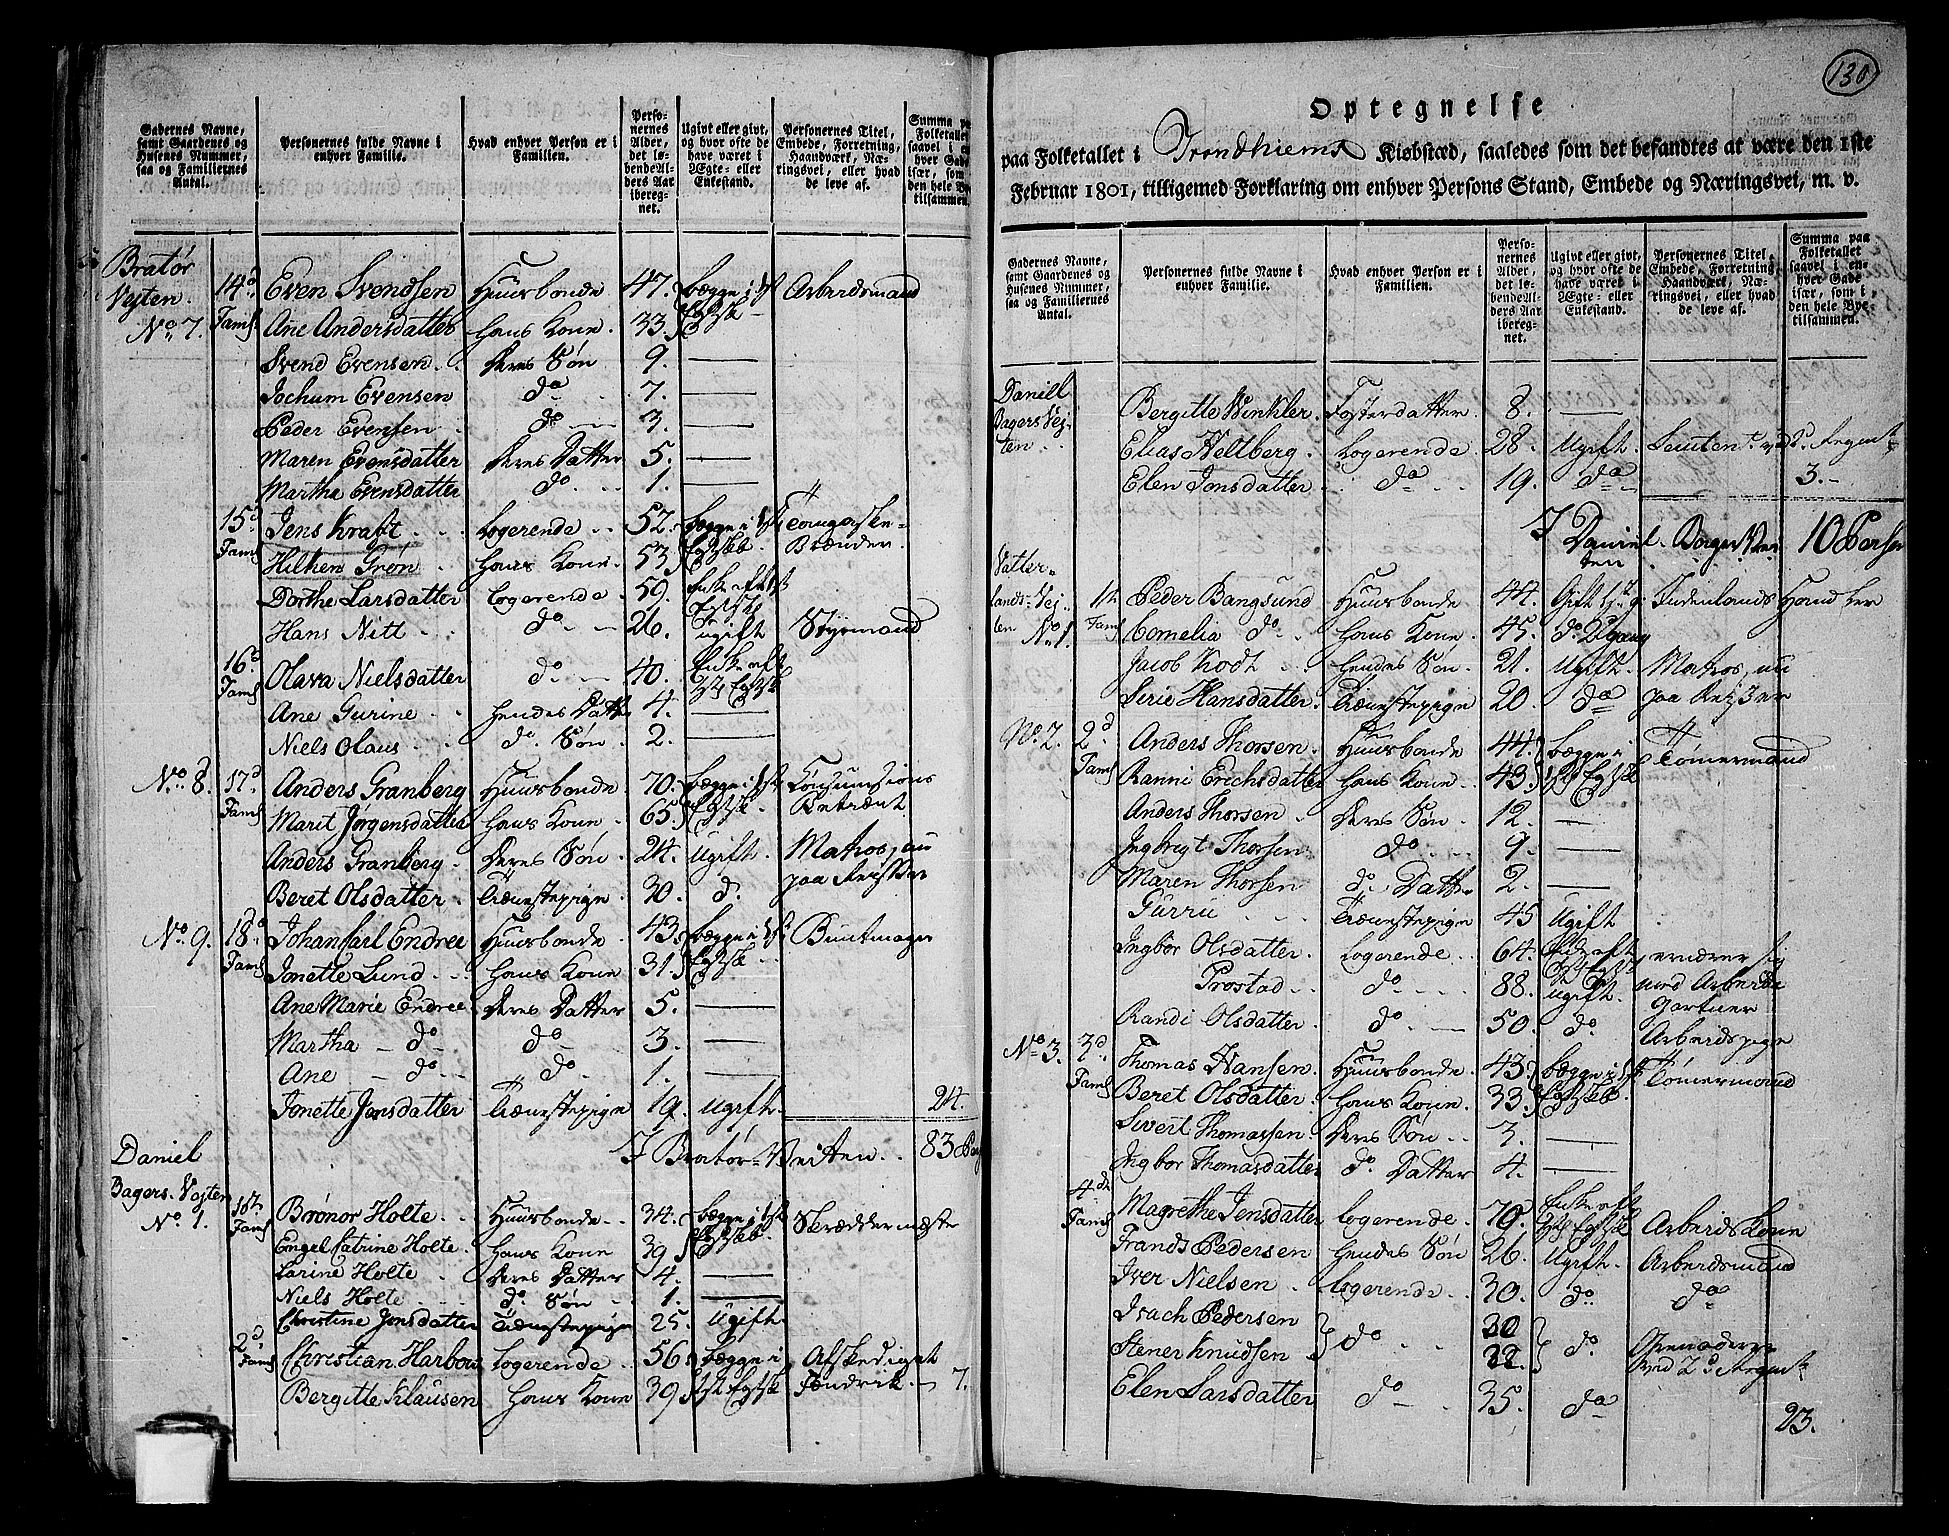 Gadernes Navne, samt Gaardenes og Husenes Nummer, saa og Familiernes Antal.
Personernes fulde Navne i enhver Familie.
Hvad enhver Person er i Familien.
Personernes Alder, det løbende Alders Aar iberegnet.
Ugivt eller givt, og hvor ofte de have været i Ægte- eller Enkestand.
Personernes Titel, Embede, Forretning, Haandværk, Næringsvei, eller hvad de leve af.
Summa paa Folketallet saavel i enhver Gade især, som i den hele Bye tilsammen.
Bratør Vejten No. 7. 14d Faml Even Svendsen Huusbonde 47. begge i 1st Arbeidsmand
Ane Andersdatter hans Kone. 33. Egtsk
Svend Evensen deres Søn 9. —
Jochum Evensen do 7. —
Peder Evensen do 3. —
Maren Evensdatter deres Datter 5. —
Martha Evensdatter do 1. —
15d Faml Jens Kraft logerende 52. begge i 1st
Hilken Grøn hans Kone 53 Egtskb. Brænder
Dorthe Larsdatter logerende 59. Enke aft 1st Egtsk
Hans Nitt do 26. ugift Styrmand
16d Faml Olava Nielsdatter do 40. Enke aft 1st Egtsk
Ane Gurine hendes Datter 4. —
Niels Olaus do. Søn 2. —
No. 8. 17d Faml Anders Granberg Huusbonde 70. begge i 1st Consumtions
Marit Jørgensdatter hans Kone 65. Egtsk. Betient
Anders Granberg deres Søn 24. Ugift. Matros, nu
Beret Olsdatter tienestepige 30. d. paa
No. 9. 18d Faml Johan Carl Endree Huusbonde 43. begge i 1st Buntmager
Jonette Lund hans Kone 31. Egtsk
Ane Marie Endree deres Datter 5. —
Martha — do do 3. —
Ane — do do. 1. —
Jonette Jonsdatter tienestepige 19. Ugift 24.
I Bratør-Veiten 83
Daniel Bagers Vejten No. 1. 1ste Faml Brønor Holte Huusbonde 34. begge i 1st Skreddermester
Engel Catrine Holte hans Kone 39 Egtskb.
Carine Holte deres Datter 4. —
Niels Holte do. Søn 1. —
Christine Jonsdatter tienestepige 25. Ugift
2d Faml Christian Harbou logerende 56 begge i Afskediget
Bergitte Klausen hans Kone 39 1st Egtsk Fendrik 7.
130
Optegnelse
paa Folketallet i Trondhiems Kiøbstæd, saaledes som det befandtes at være den 1ste
Februar 1801, tilligemed Forklaring om enhver Persons Stand, Embede og Næringsvei, m. v.
Gadernes Navne, samt Gaardenes og Husenes Nummer, saa og Familiernes Antal.
Personernes fulde Navne i enhver Familie.
Hvad enhver Person er i Familien.
Personernes Alder, det løbende Alders Aar iberegnet.
Ugivt eller givt, og hvor ofte de have været i Ægte- eller Enkestand.
Personernes Titel, Embede, Forretning, Haandværk, Næringsvei, eller hvad de leve af.
Summa paa Folketallet saavel i enhver Gade især, som i den hele Bye tilsammen.
Daniel Bagers Vejten. Bergitte Winkler fosterdatter 8. —
Elias Heltberg logerende 28. Ugift.
Elen Jonsdatter do 19. do 3.
I Daniel Bager Veiten 10 Perso
Vatterlands-Vejten No. 1. 1te Faml Peder Bangsund Huusbonde 44. Gift 1ste g: Indenlands
Cornelia do hans Kone 45. do 2 gang
Jacob Kodt hendes Søn 21. Ugift. Matros, nu
Serie Hansdatter tienestepige 20. do paa
No. 2. 2d Faml Anders Thorsen Huusbonde 44. begge i Tømermand
Ranni Erichsdatter hans Kone 43. 1st Egtsk
Anders Thorsen deres Søn 12. —
Ingbrigt Thorsen do 9. —
Maren Thorsen do. Datter 2. —
Gurru tienestepige 45 Ugift
Ingbor Olsdatter logerende 64. ernærer sig
Prostad do 88. Ugift. med Arbeide
Randi Olsdatter do 50. do Arbeidspige
No. 3. 3d. Faml Thomas Hansen Huusbonde 43. begge i 1st Tømermand
Beret Olsdatter hans Kone. 33. Egtskb.
Sivert Thomassen deres Søn 7. —
Ingbor Thomasdatter do. Datter 4. —
4de Faml Magrethe Jensdatter logerende 70. Enke aft 1st Egtsk Arbeids Kone
Frands Pedersen hendes Søn 26. Ugift. Arbeidsmand
Iver Nielsen logerende 30. do do
Isach Pedersen do 30 do. Grenaderer
Stener Knudsen 32. ved 2d
Elen Larsdatter do 35. do
23.